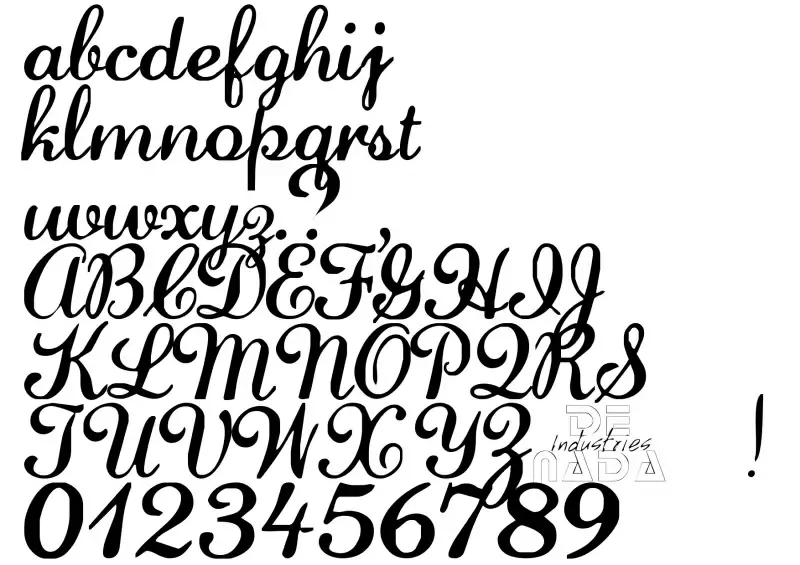 abcdefghij
klmnopqrst
uvwxyz.:?
ABCDEF'GHIJ
KLMNOPQRS
TUVWXYZ
DE
Industries
NADA
!
0123456789